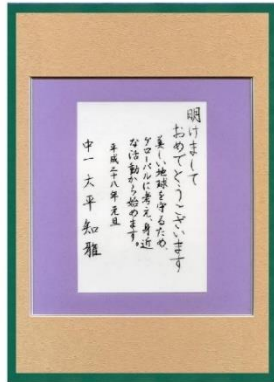 明けまして
おめでとうございます
美しい地球を守るため、
グローバルに考え、身近
な活動から始めます。
平成二十八年元旦
中一 大平知雅